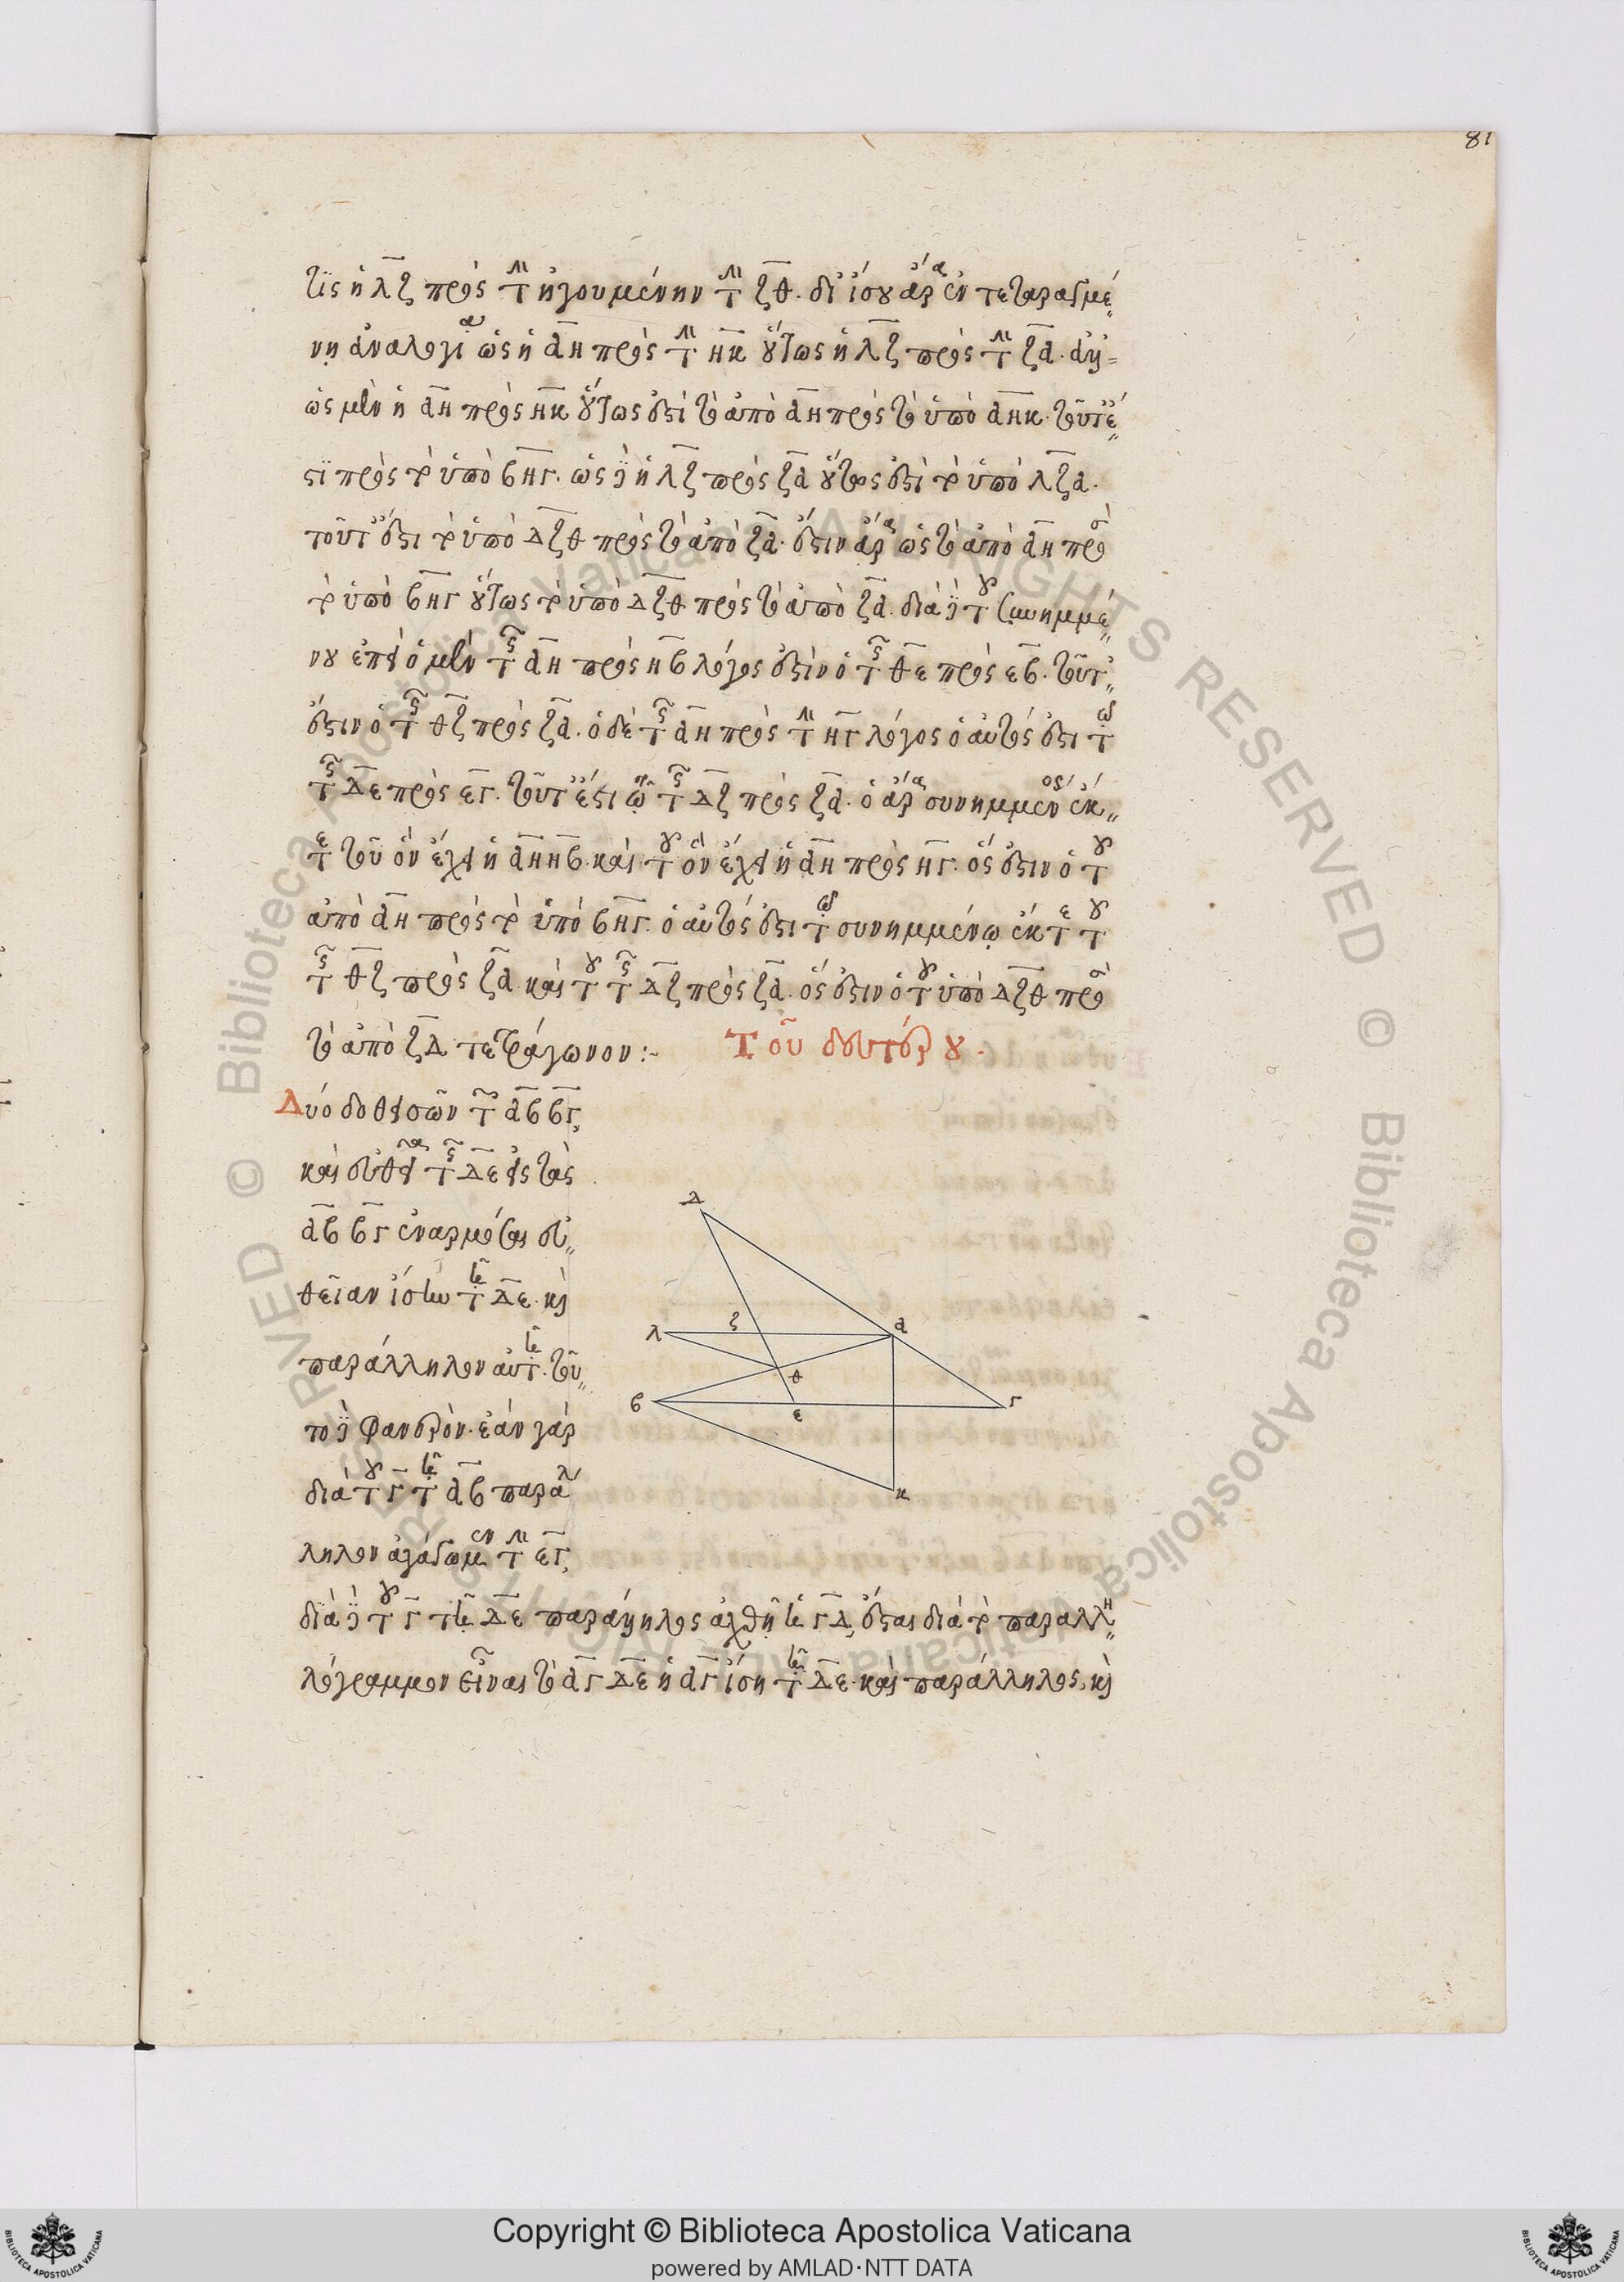 81
τις ἡ λζ πρὸς τὴν ἡγουμένην τὴν ζθ. δι ἴσου ἄρα ἐν τεταραγμέ
νῃ ἀναλογία ὡς ἡ αη πρὸς τὴν ηκ οὕτως ἡ λζ πρὸς τὴν ζα. ἀλλ
ὡς μὲν ἡ αη πρὸς ηκ οὕτως ἐστὶ τὸ ἀπὸ αη πρὸς τὸ ὑπὸ αηκ. τουτέ
στι πρὸς τὸ ὑπὸ βηγ. ὡς δὲ ἡ λζ πρὸς ζα οὕτως ἐστὶ τὸ ὑπὸ λζα.
τοῦτ ἔστι τὸ ὑπὸ δζθ πρὸς τὸ ἀπὸ ζα. ἔστιν ἄρα ὡς τὸ ἀπὸ αη πρὸς
τὸ ὑπὸ βηγ οὕτως τὸ ὑπὸ δζθ πρὸς τὸ ἀπὸ ζα. διὰ δὲ τοῦ συνημμέ
νου ἐπεὶ ὁ μὲν τῆς αη πρὸς ηβ λόγος ἐστὶν ὁ τῆς θε πρὸς εβ. τοῦτ
ἔστιν ὁ τῆς θζ πρὸς ζα. ὁ δὲ τῆς αη πρὸς τὴν ηγ λόγος ὁ αὐτός ἐστι τῷ
τῆς δε πρὸς εγ. τουτέστι τῷ τῆς δζ πρὸς ζα. ὁ ἄρα συνημμένος ἐκ
τε τοῦ ὃν ἔχει ἡ αη ηβ. καὶ τοῦ ὃν ἔχει ἡ αη πρὸς ηγ. ὅς ἐστιν ὁ τοῦ
ἀπὸ αη πρὸς τὸ ὑπὸ βηγ. ὁ αὐτός ἐστι τῷ συνημμένῳ ἐκ τε τοῦ
τῆς θζ πρὸς ζα. καὶ τοῦ τῆς δζ πρὸς ζα. ὅς ἐστιν ὁ τοῦ ὑπὸ δζθ πρὸς
τὸ ἀπὸ ζα τετράγωνον :~ Τοῦ δευτέρου.
Δύο δοθεισῶν τῶν αβ βγ
καὶ εὐθείας τῆς δε εἰς τὰς
αβ βγ ἐναρμόσαι εὐ
θεῖαν ἴσην τῇ δε. καὶ
παράλληλον αὐτῇ. τοῦ
το δὲ φανερόν. ἐὰν γὰρ
διὰ τοῦ γ τῇ αβ παράλ
ληλον ἀγάγωμεν τὴν εγ
διὰ δὲ τοῦ γ τῇ δε παράλληλος ἀχθῇ ἡ γδ, ἔσται διὰ τὸ παραλλη
λόγραμμον εἶναι τὸ αγ δε ἡ αγ ἴση τῇ δε. καὶ παράλληλος. καὶ
Δ
λ ζ α
θ
β ε γ
κ
Copyright © Biblioteca Apostolica Vaticana
powered by AMLAD·NTT DATA